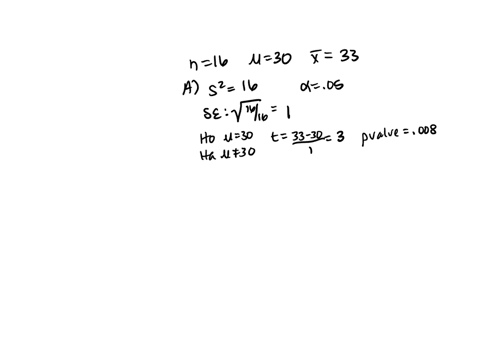 n=16 μ=30 x̄=33
A) s²=16 α=.05
SE: √16/16 = 1
Ho μ=30 t=33-30/1=3 pvalue=.008
Ha μ≠30